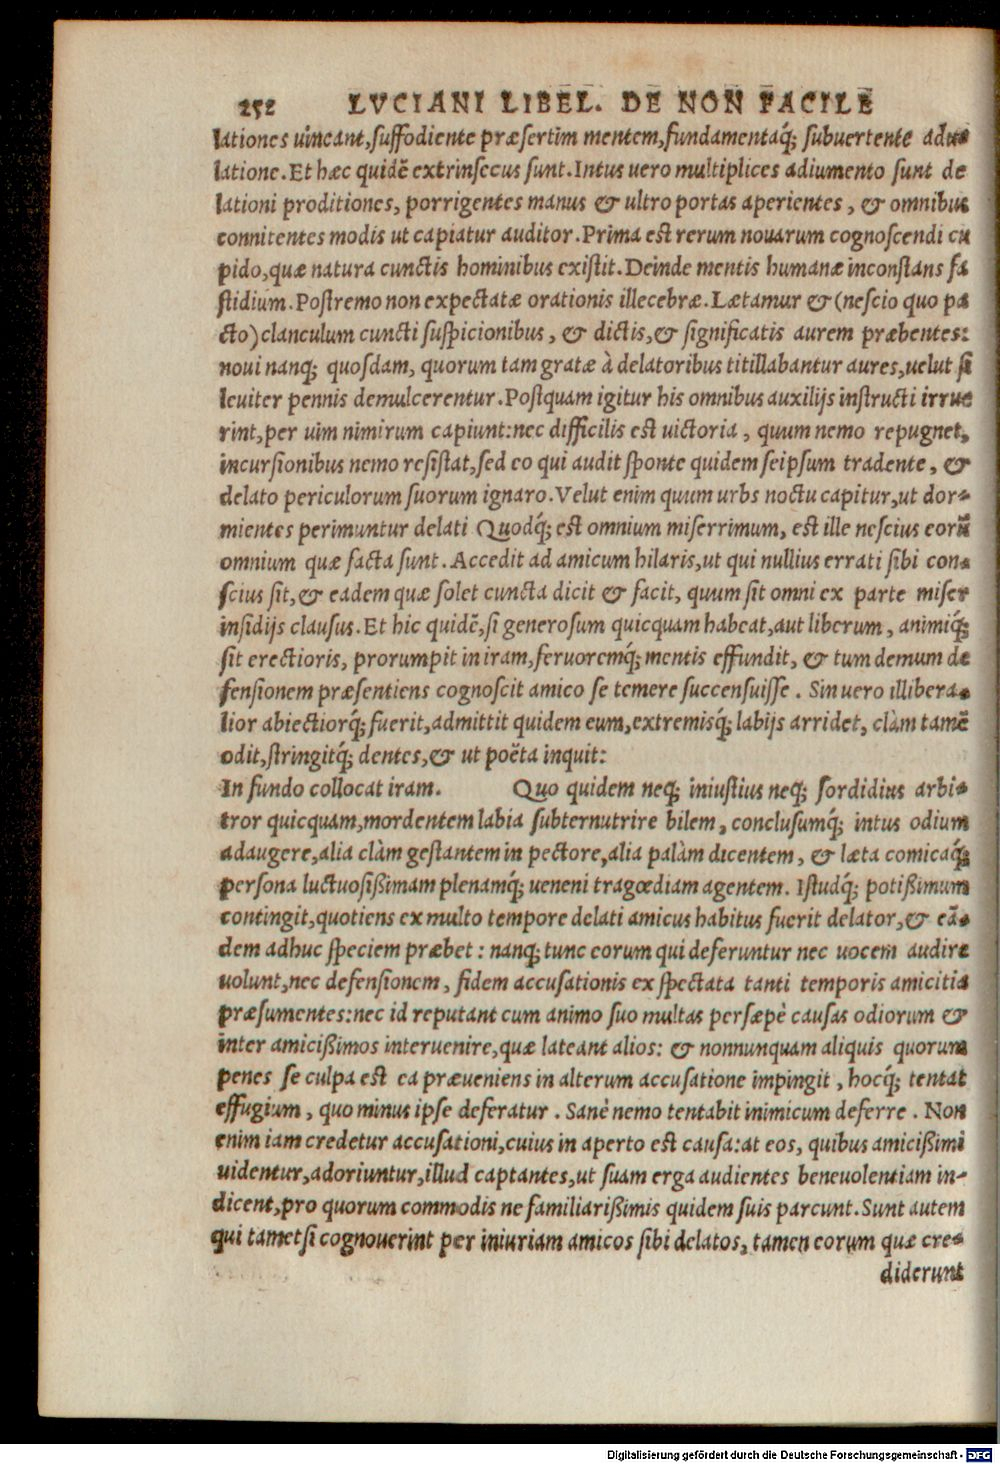 252 LVCIANI LIBEL. DE NON FACILE
lationes uincant, suffodiente præsertim mentem, fundamentaq́; subuertente adu-
latione. Et hæc quidẽ extrinsecus sunt. Intus uero multiplices adiumento sunt de
lationi proditiones, porrigentes manus & ultro portas aperientes, & omnibus
connitentes modis ut capiatur auditor. Prima est rerum nouarum cognoscendi cu
pido, quæ natura cunctis hominibus existit. Deinde mentis humanæ inconstans fa
stidium. Postremo non expectatæ orationis illecebræ. Lætamur & (nescio quo pa
cto) clanculum cuncti suspicionibus, & dictis, & significatis aurem præbentes:
noui nanq; quosdam, quorum tam gratæ à delatoribus titillabantur aures, uelut si
leuiter pennis demulcerentur. Postquam igitur his omnibus auxilijs instructi irrue
rint, per uim nimirum capiunt: nec difficilis est uictoria, quum nemo repugnet,
incursionibus nemo resistat, sed eo qui audit sponte quidem seipsum tradente, &
delato periculorum suorum ignaro. Velut enim quum urbs noctu capitur, ut dor-
mientes perimuntur delati Quodq́; est omnium miserrimum, est ille nescius eorũ
omnium quæ facta sunt. Accedit ad amicum hilaris, ut qui nullius errati sibi con-
scius sit, & eadem quæ solet cuncta dicit & facit, quum sit omni ex parte miser
insidijs clausus. Et hic quidẽ, si generosum quicquam habeat, aut liberum, animiq́;
sit erectioris, prorumpit in iram, feruoremq́; mentis effundit, & tum demum de
fensionem præsentiens cognoscit amico se temere succensuisse. Sin uero illibera-
lior abiectiorq́; fuerit, admittit quidem eum, extremisq́; labijs arridet, clàm tamẽ
odit, stringitq́; dentes, & ut poëta inquit:
In fundo collocat iram. Quo quidem neq; iniustius neq; sordidius arbi-
tror quicquam, mordentem labia subternutrire bilem, conclusumq́; intus odium
adaugere, alia clàm gestantem in pectore, alia palàm dicentem, & læta comicaq́;
persona luctuosißimam plenamq́; ueneni tragœdiam agentem. Istudq́; potißimum
contingit, quotiens ex multo tempore delati amicus habitus fuerit delator, & eã-
dem adhuc speciem præbet: nanq; tunc eorum qui deferuntur nec uocem audire
uolunt, nec defensionem, fidem accusationis ex spectata tanti temporis amicitia
præsumentes: nec id reputant cum animo suo multas persæpè causas odiorum &
inter amicißimos interuenire, quæ lateant alios: & nonnunquam aliquis quorum
penes se culpa est ea præueniens in alterum accusatione impingit, hocq́; tentat
effugium, quo minus ipse deferatur. Sanè nemo tentabit inimicum deferre. Non
enim iam credetur accusationi, cuius in aperto est causa: at eos, quibus amicißimi
uidentur, adoriuntur, illud captantes, ut suam erga audientes beneuolentiam in-
dicent, pro quorum commodis ne familiarißimis quidem suis parcunt. Sunt autem
qui tametsi cognouerint per iniuriam amicos sibi delatos, tamen eorum quæ cre-
diderunt
Digitalisierung gefördert durch die Deutsche Forschungsgemeinschaft - DFG